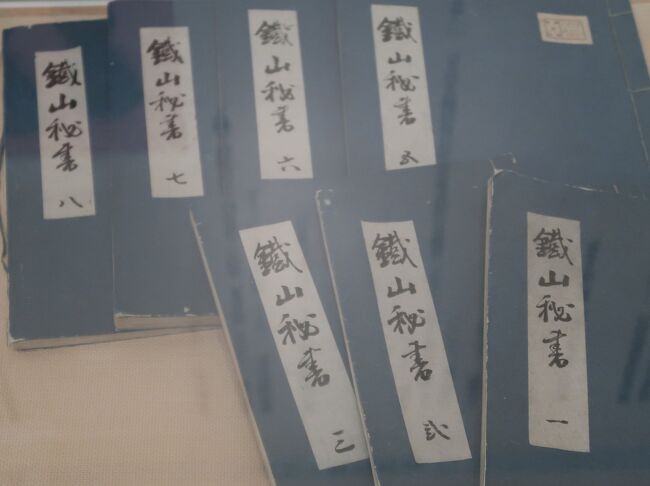 鐵山秘書 八
鐵山秘書 七
鐵山秘書 六
鐵山秘書 五
鐵山秘書 三
鐵山秘書 弐
鐵山秘書 一